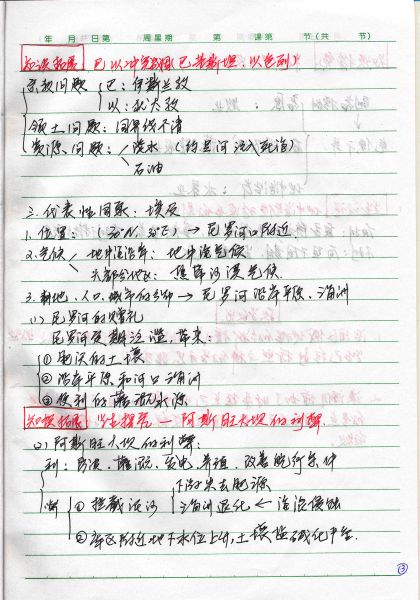 年 月 日第 周星期 第 课第 节(共 节)
知识拓展 巴以冲突(巴勒斯坦,以色列)
宗教问题 巴:伊斯兰教
以:犹太教
领土问题:国界线不清
资源问题: 淡水 (约旦河注入死海)
石油
三.代表性国家:埃及
1.位置:(30°N, 30°E) → 尼罗河口附近
2.气候 地中海沿岸:地中海气候
大部分地区:热带沙漠气候
3.耕地、人口、城市的分布 → 尼罗河沿岸平原、三角洲
(1) 尼罗河的赠礼
尼罗河定期泛滥,带来:
①肥沃的土壤
②沿岸平原和河口三角洲
③便利的灌溉水源
知识拓展 学生探究 — 阿斯旺大坝的利弊
(2) 阿斯旺大坝的利弊:
利:防洪、灌溉、发电、养殖、改善航行条件
下游失去肥源
弊 ①拦截泥沙 三角洲退化 ← 海浪侵蚀
②库区附近地下水位上升,土壤盐碱化严重.
③